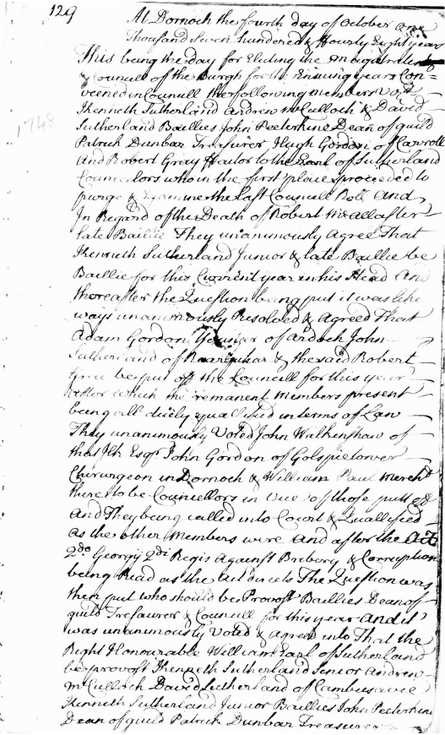 129
At Dornoch the fourth day of October One
Thousand Seven hundred & ffourty Eight years
This being the day for Electing the Magistrates
& Councill of the Burgh for the Ensuing year Con-
veened in Councill the following members Vizt
Kenneth Sutherland Andrew McCulloch & David
Sutherland Baillies John Peeterkine Dean of guild
Patrick Dunbar Treasurer Hugh Gordon of Carroll
And Robert Gray ffactor to the Earl of Sutherland
Councilors who in the first place proceeded to
purge & Examine the last Councill Roll And
1748
In Regard of the Death of Robert McAllaster
late Baillie They unanimously Agree That
Kenneth Sutherland Junior & late Baillie be
Baillie for this Current year in his Stead And
thereafter the Question being put it was like
ways unanimously Resolved & Agreed That
Adam Gordon Younger of Ardoch John
Sutherland of & the said Robert
Gray be put off the Councill for this year
After which the remanent Members present
being all duely quallified in terms of Law
They unanimously Voted John Walkenshaw of
that Ilk Esqr John Gordon of Golspietower
Chirurgeon in Dornoch & William Paul Mercht
there to be Councillors in Vice of those putt off
And They being called into Court & Quallified
as the other Members were And after the Act
2do Georgij 2di Regis Against Bribery & Corruption
being Read as the Act directs The Question was
then put who should be Provost Baillies Dean of
guild Treasurer & Councill for this year And it
was unanimously Voted & Agreed into That the
Right Honourable William Earl of Sutherland
be provost Kenneth Sutherland Senior Andrew
McCulloch David Sutherland of Cambusavie
Kenneth Sutherland Junior Baillies John Peeterkine
Dean of guild Patrick Dunbar Treasurer